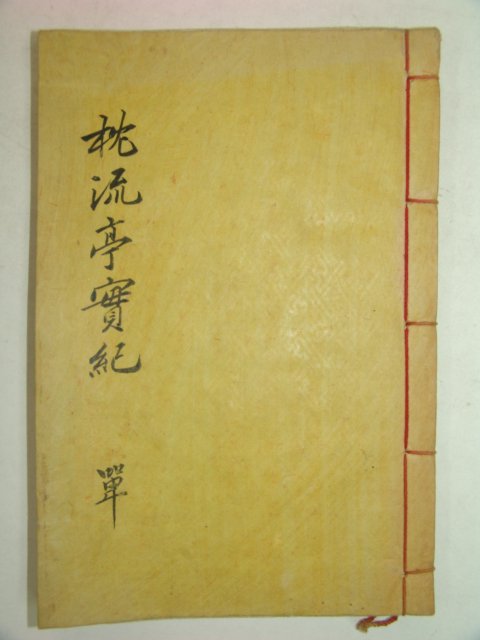 枕流亭實紀 單